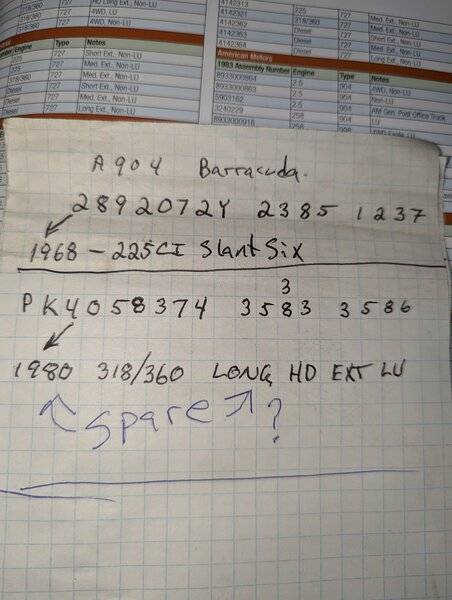 4142313
4142321 225 727 Med. Ext., Non-LU
4142362 318/360 727 Med. Ext., Non-LU
4142363 Diesel 727 Med. Ext., Non-LU
4142364 Diesel 727 Med. Ext., Non-LU
Diesel 727 Long Ext., Non-LU
American Motors
1983 Assembly Number Engine Type Notes
8933000864 2.5 904 4WD, Non-LU
8933000863 2.5 904 Non-LU
5903162 2.5 904 AM Gen. Post Office Truck
3240229 258 904 LU
8933000916 258
318/360 727 HD Long Ext., Non-LU
318/360 727 4WD, LU
318/360 727 4WD, Non-LU
Engine Type Notes
225 727 Short Ext., Non-LU
318/360 727 Med. Ext., Non-LU
Diesel 727 Short Ext., Non-LU
Diesel 727 Med. Ext., Non-LU
Diesel 727 Long Ext., Non-LU
A904 Barracuda.
2892072Y 2385 1237
1968 - 225CI Slant Six
3
PK4058374 3583 3586
1980 318/360 LONG, HD EXT LU
Spare ?